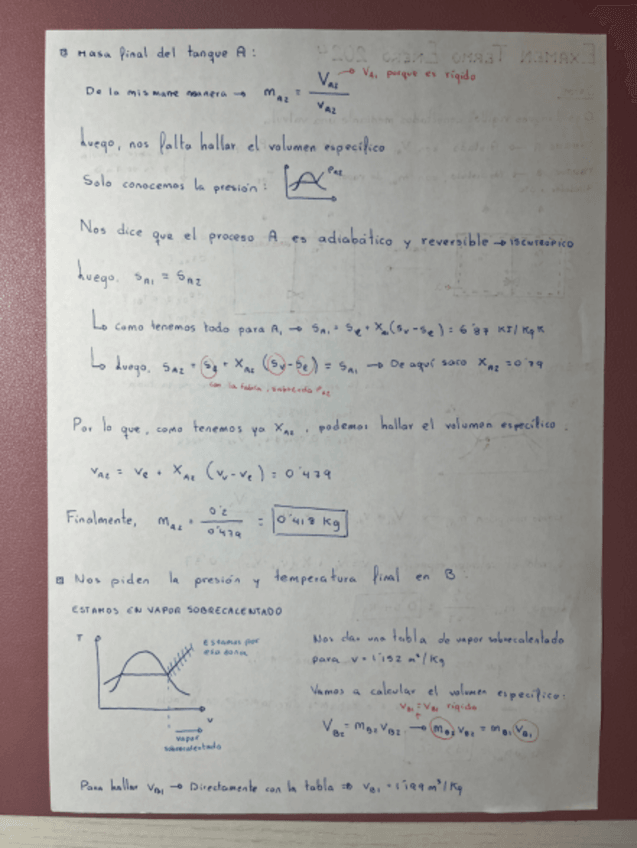 Masa final del tanque A:
De la misma manera → m_A2 = V_A2 / v_A2 → V_A1 porque es rígido
Luego, nos falta hallar el volumen específico
Solo conocemos la presión: P_A2
Nos dice que el proceso A es adiabático y reversible → isentrópico
Luego, s_A1 = s_A2
↳ Como tenemos todo para A, → s_A1 = s_e + x_A1 (s_v - s_e) = 6'87 KJ/KgK
↳ Luego, s_A2 = s_e + x_A2 (s_v - s_e) = s_A1 → De aquí saco x_A2 = 0'79
con la tabla, sabiendo P_A2
Por lo que, como tenemos ya x_A2, podemos hallar el volumen específico.
v_A2 = v_e + x_A2 (v_v - v_e) = 0'479
Finalmente, m_A2 = 0'2 / 0'479 = 0'418 Kg
Nos piden la presión y temperatura final en B.
ESTAMOS EN VAPOR SOBRECALENTADO
T
estamos por esa zona
v
vapor
sobrecalentado
Nos dan una tabla de vapor sobrecalentado
para v = 1'152 m³/Kg
Vamos a calcular el volumen específico:
V_B1 = V_B2 rígido
V_B2 = m_B2 v_B2 → m_B2 v_B2 = m_B1 v_B1
Para hallar v_B1 → Directamente con la tabla ⇒ v_B1 = 1'199 m³/Kg